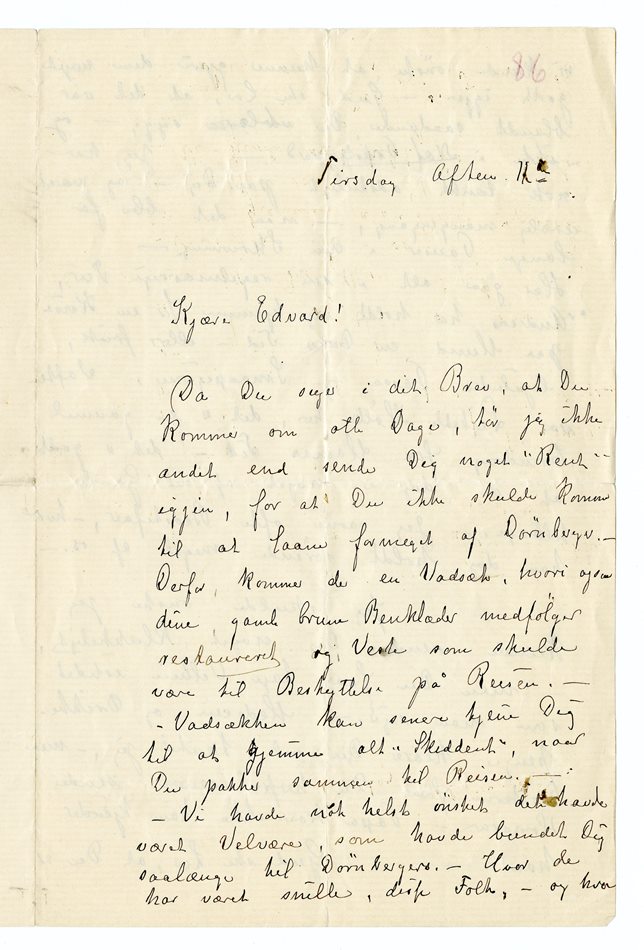 86
Tirsdag Aften
Kjære Edvard!
Da Du siger i dit Brev, at Du
kommer om otte Dage, tör jeg ikke
andet end sende Dig noget "Rent"
igjen, for at Du ikke skulde komme
til at laane formeget af Dörnberger. —
Derfor kommer de en Vadsæk, hvori ogsaa
dine gamle brune Benklæder medfölger
restaureret og Veste som skulde
være til Beskyttelse på Reisen. —
- Vadsækken kan senere tjene Dig
til at gjemme alt "Skiddent", naar
Du pakker sammen til Reisen. —
— Vi havde nok helst önsket det havde
været Velvære, som havde bundet Dig
saalænge til Dörnbergers. — Hvor de
har været snille, disse Folk, — og hvor